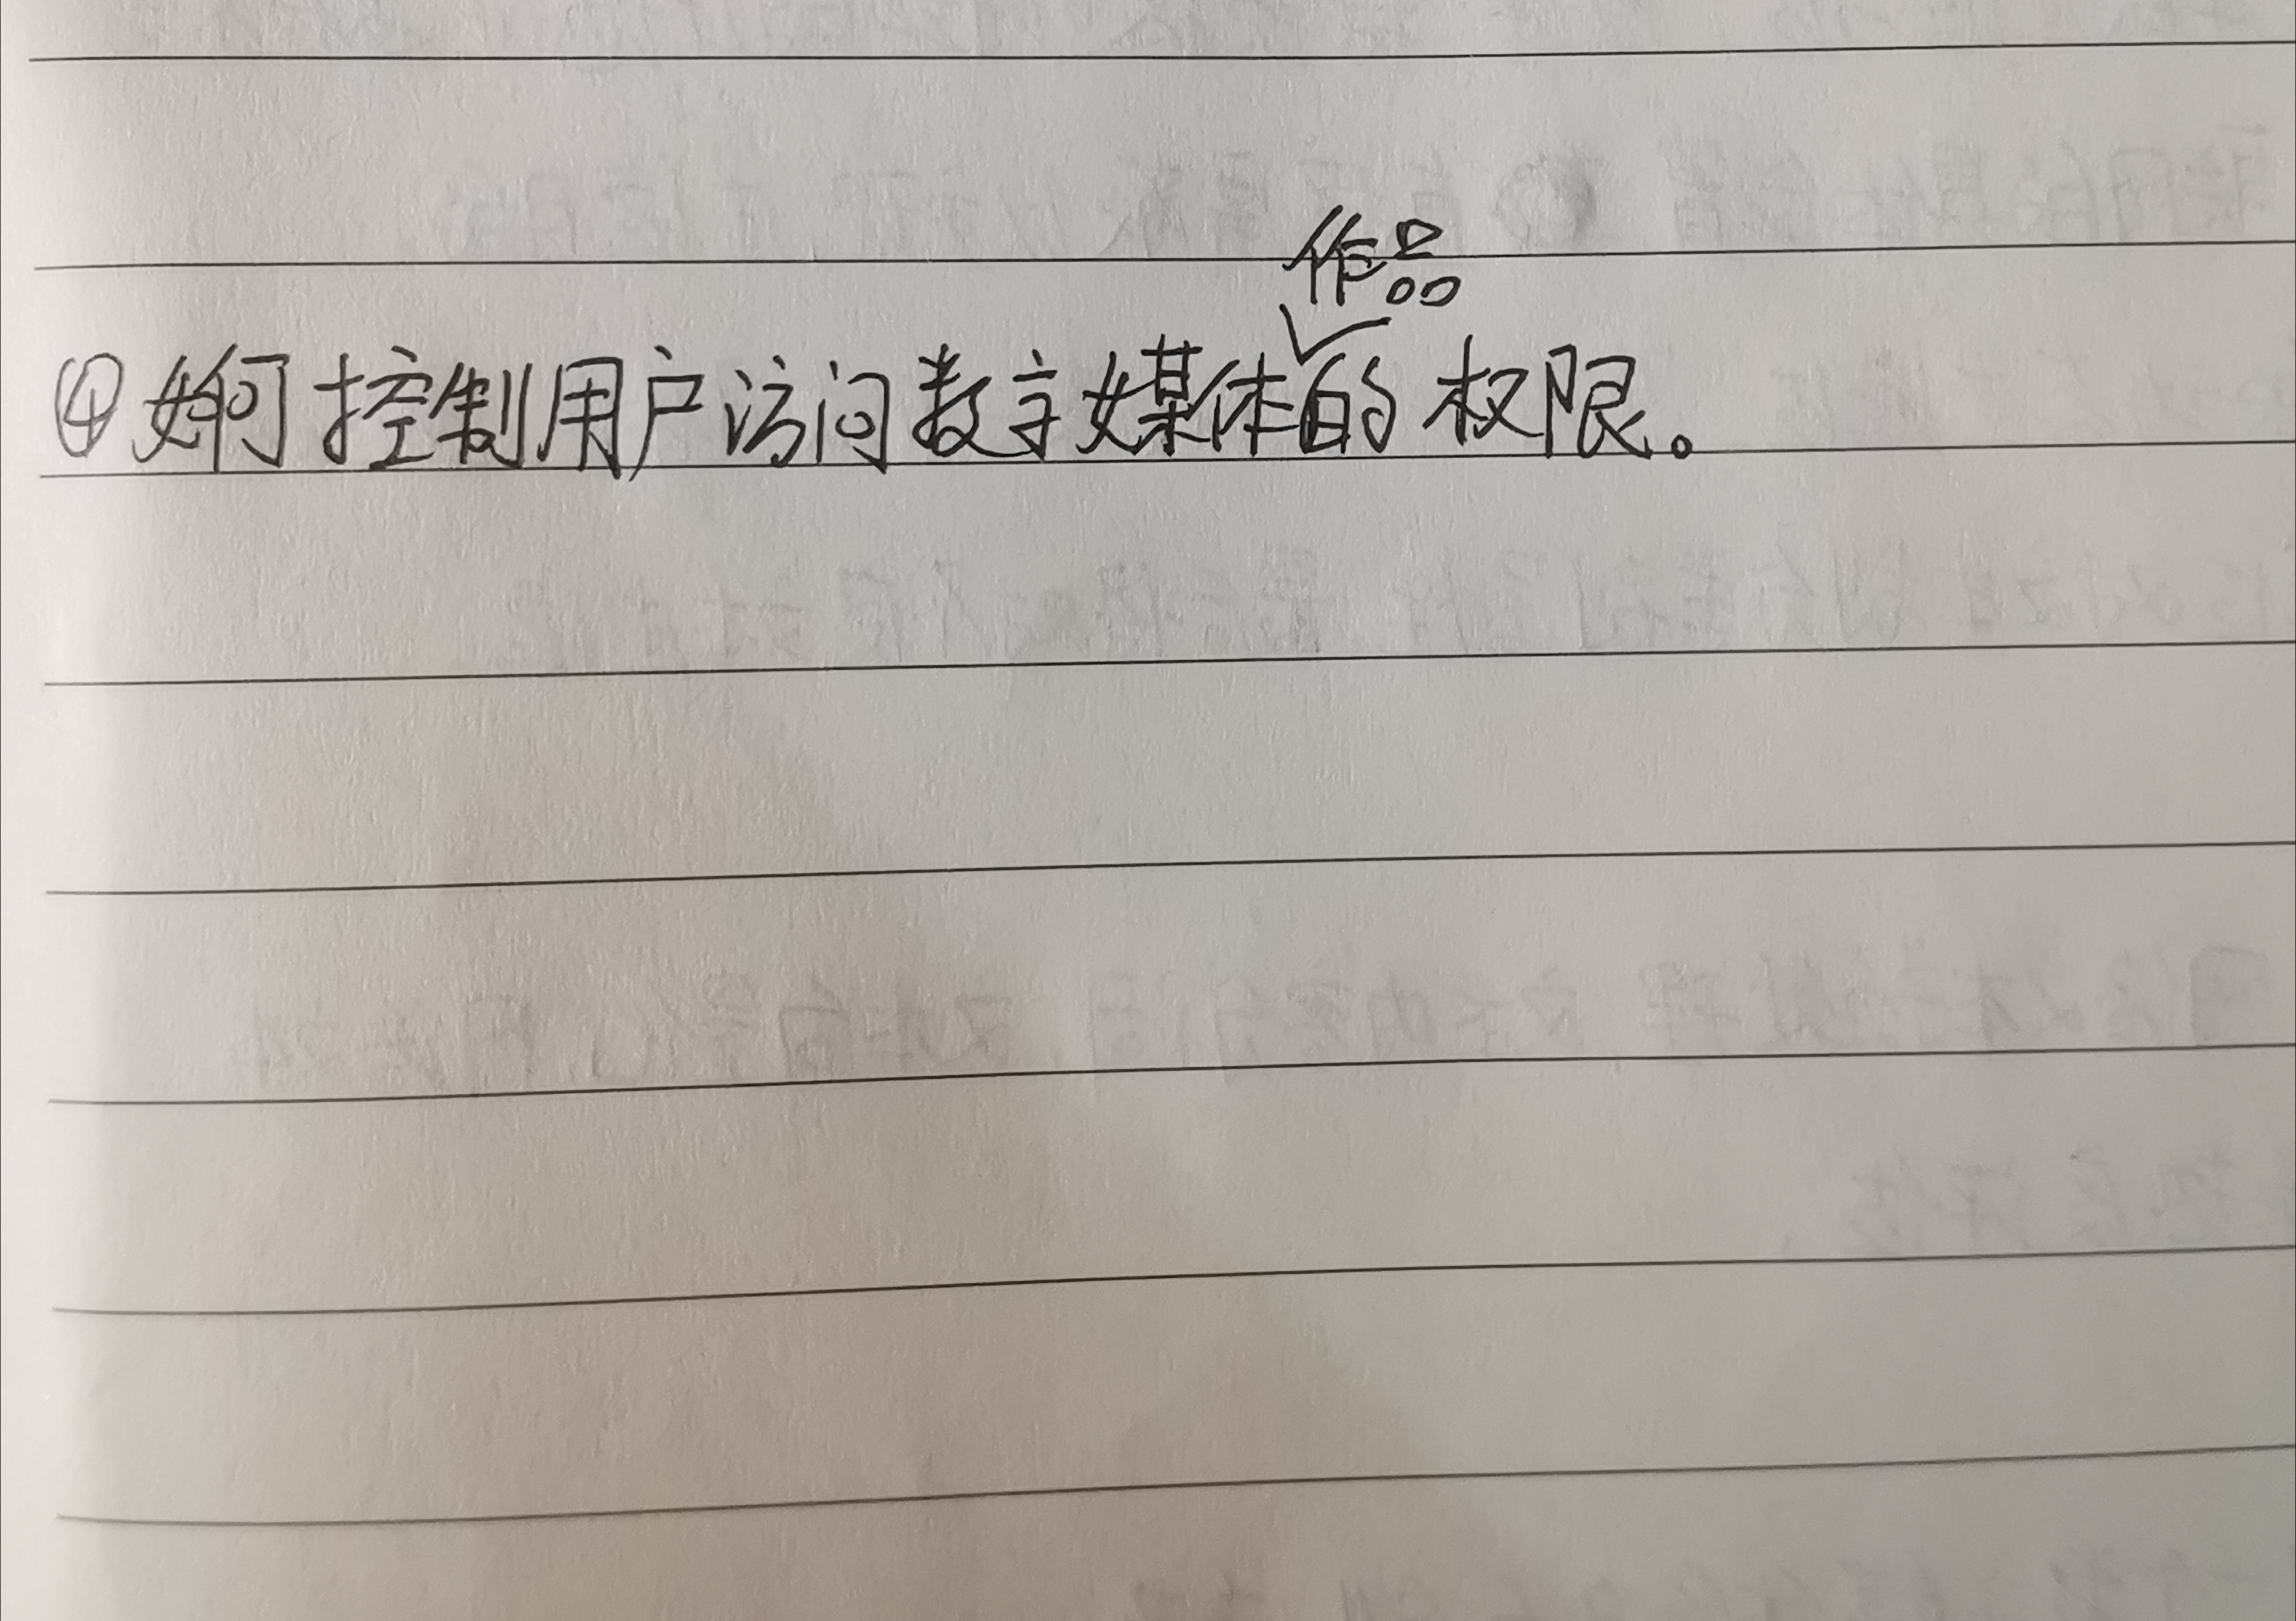 ④如何控制用户访问数字媒体作品的权限。